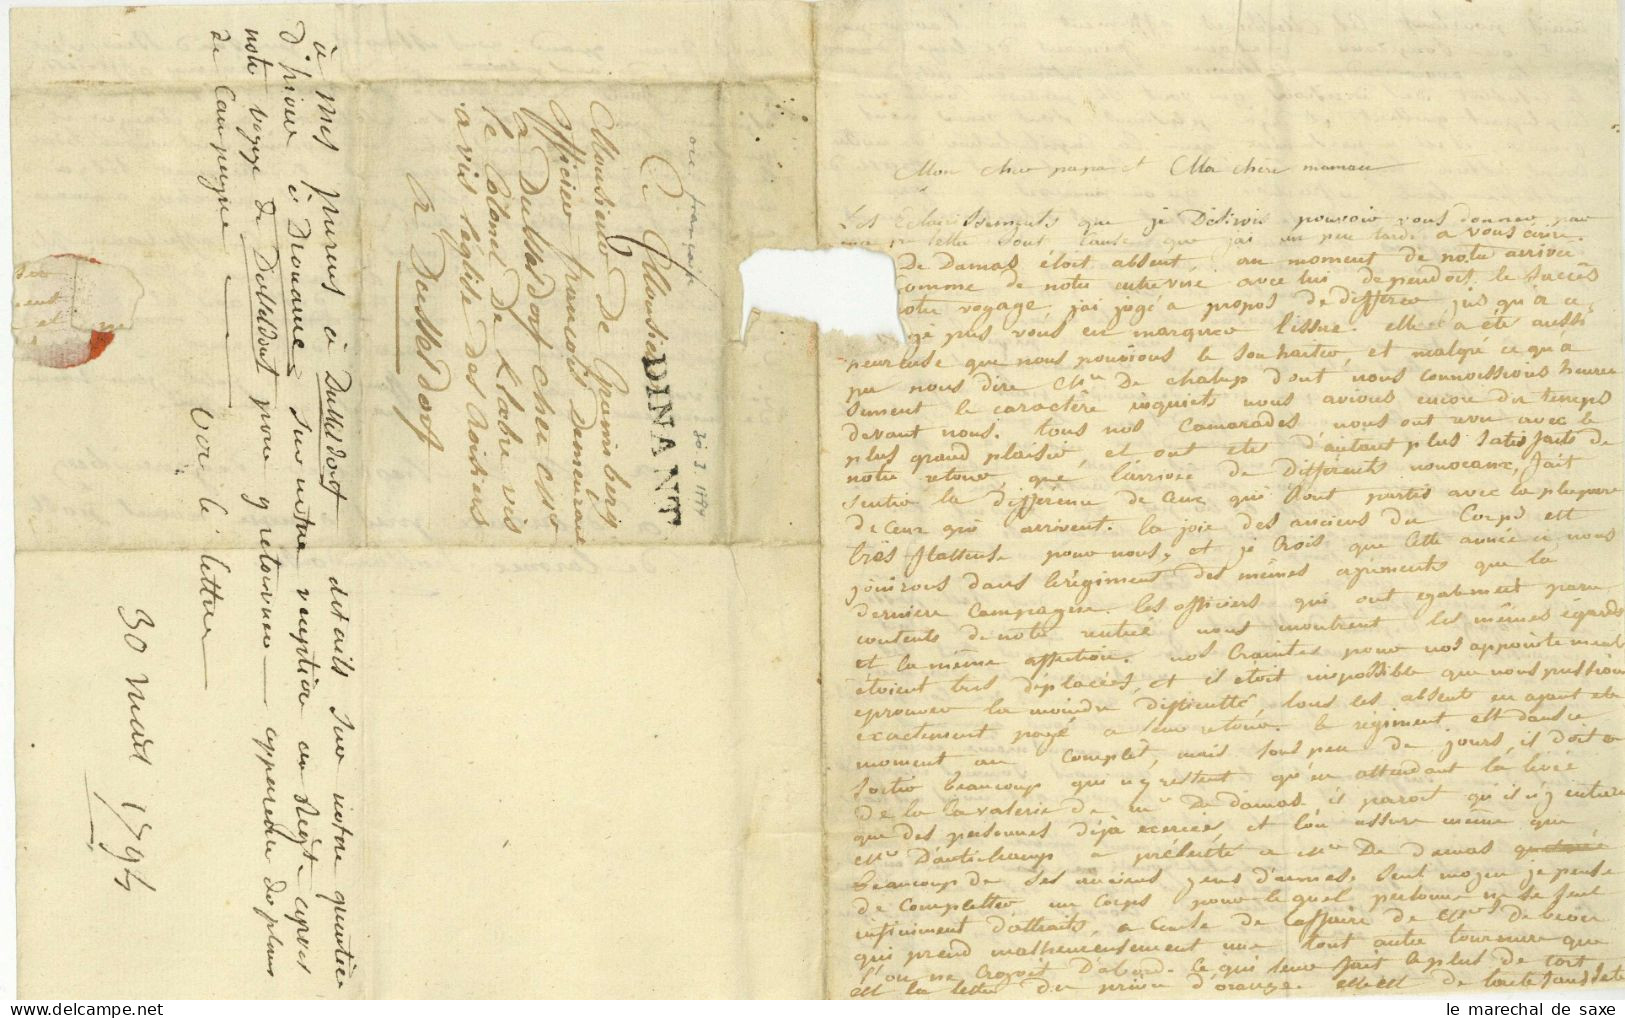 à Mes parens à Dusseldorf détails sur notre quartier
d'hiver à Dinant sur notre reception au Régt. apres
notre voyage de Dusseldorf pour y retourner
de Campagne
voir le lettre
30 mars 1794
A Monsieur
DINANT
Monsieur De Grainberg
officier francois demeurant
a Dusseldorf chez
le Colonel De vis
a vis l'église des Croisiers
A Dusseldorf
30. 3. 1794
Mon cher papa et Ma chere maman
Les Eclaircissements que je Désirois pouvoir vous donner par
ma lettre sont cause que j'ai un peu tardé a vous écrire.
De Damas étoit absent, au moment de notre arrivée
comme de notre entrevue avec lui dependoit le succès
notre voyage, j'ai jugé a propos de differer jusqu'a ce
que pus vous en marquer l'issue. elle a été aussi
heureuse que nous pouvions le souhaiter, et malgré ce qu'a
pu nous dire Mr De chalup dont nous connoissions heureu
sement le caractère inquiet nous avions encore du temps
devant nous. tous nos Camarades nous ont revu avec le
plus grand plaisir, et ont été d'autant plus satisfaits de
notre retour, que l'arrivée de differents nouveaux, fait
sentir la difference de ceux qui sont partis avec la plupart
de ceux qui arrivent. la joie des anciens du Corps est
très flatteuse pour nous, et je crois que cette année ci nous
jouirons dans le régiment des mêmes agrements que la
derniere Campagne. les officiers qui ont egalement paru
contents de notre rentrée nous montrent les mêmes égards
et la même affection. nos craintes pour nos appointements
étoient tres déplacées, et il étoit impossible que nous pussions
eprouver la moindre difficulté, tous les absents en ayant eté
exactement payé a leur retour. le régiment est dans ce
moment au Complet, mais sous peu de jours, il doit en
sortir beaucoup qui n'y restent qu'en attendant la levée
De la Cavalerie de Mr De Damas, il paroit qu'il n'y entrera
que des personnes déja exercées, et l'on assure même que
Mr D'autichamp a présenté a Mr De Damas
beaucoup de ses anciens gens d'armes, seul moyen je pense
de completter un Corps pour lequel personne ne se sent
infiniment d'attraits, a cause de l'affaire de Mrs De beon
qui prend malheureusement une tout autre tournure que
l'on ne croyoit D'abord. Ce qui leur fait le plus de tort
est la lettre du prince d'orange. elle est de toute fausseté
le marechal de saxe